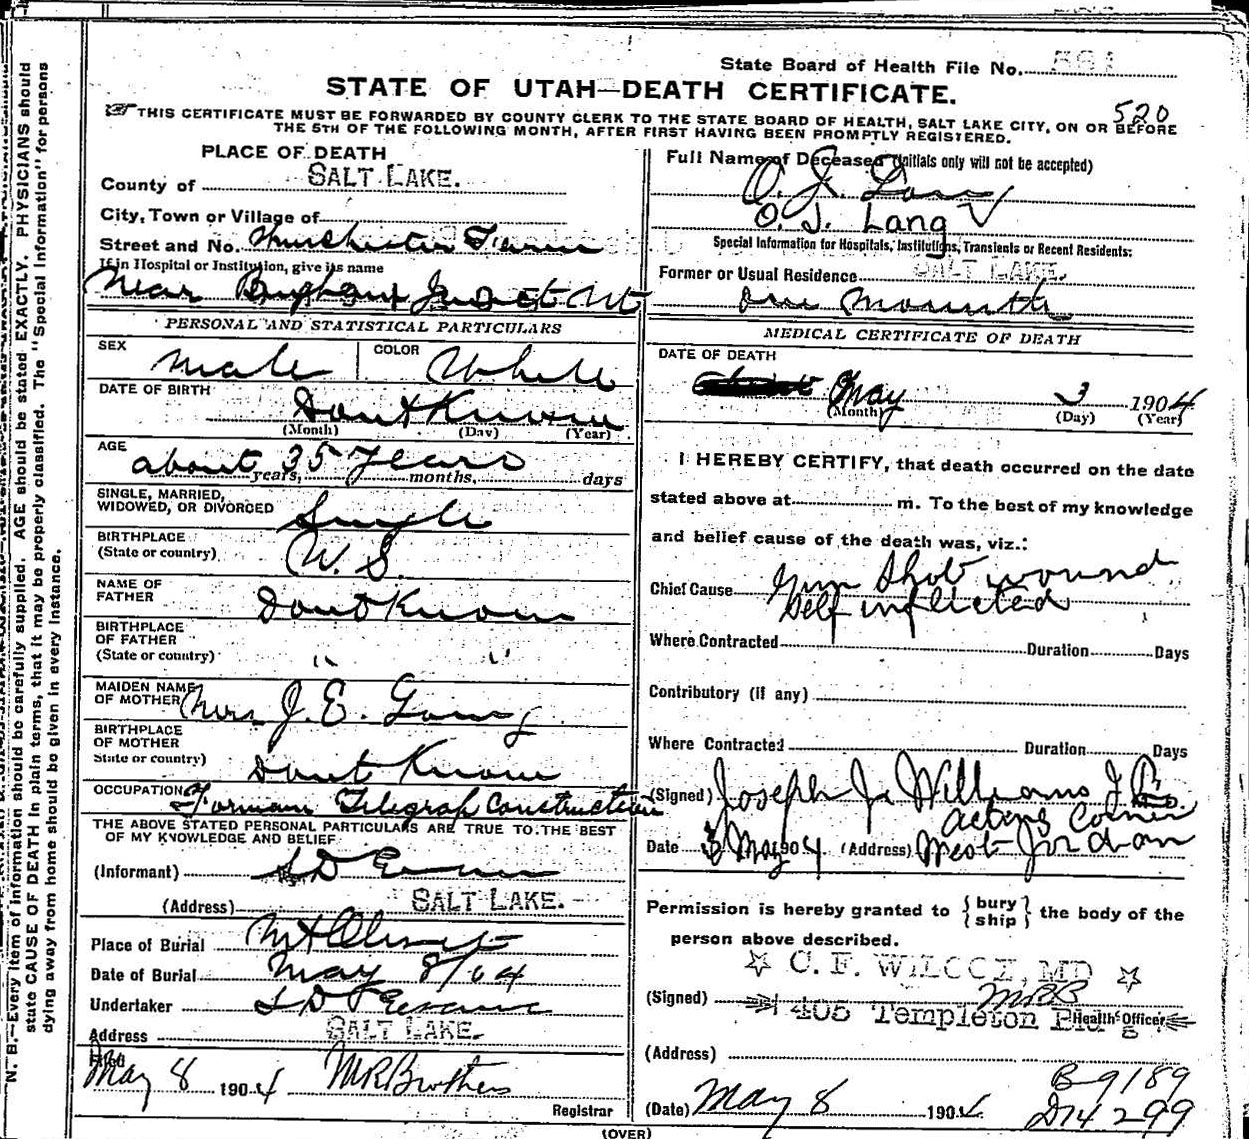 State Board of Health File No. 561
STATE OF UTAH—DEATH CERTIFICATE.
520
THIS CERTIFICATE MUST BE FORWARDED BY COUNTY CLERK TO THE STATE BOARD OF HEALTH, SALT LAKE CITY, ON OR BEFORE
THE 5TH OF THE FOLLOWING MONTH, AFTER FIRST HAVING BEEN PROMPTLY REGISTERED.
PLACE OF DEATH
County of SALT LAKE.
City, Town or Village of
Street and No. Winchester Farm
If in Hospital or Institution, give its name
Near Bingham Junct Ut
PERSONAL AND STATISTICAL PARTICULARS
SEX Male COLOR White
DATE OF BIRTH
Dont Know
(Month) (Day) (Year)
AGE
about 35 years
years, months, days
SINGLE, MARRIED,
WIDOWED, OR DIVORCED Single
BIRTHPLACE
(State or country) U. S.
NAME OF
FATHER Dont Know
BIRTHPLACE
OF FATHER
(State or country) " "
MAIDEN NAME
OF MOTHER Mrs J. E.
BIRTHPLACE
OF MOTHER
State or country) Dont Know
OCCUPATION Forman Telegraph Construction
THE ABOVE STATED PERSONAL PARTICULARS ARE TRUE TO THE BEST
OF MY KNOWLEDGE AND BELIEF
(Informant) S D Evans
(Address) SALT LAKE.
Place of Burial Mt Olivet
Date of Burial May 8/04
Undertaker S D Evans
Address SALT LAKE.
Filed
May 8 1904 M R Brothers
Registrar
Full Name of Deceased (Initials only will not be accepted)
O. J. Lang
O. J. Lang
Special Information for Hospitals, Institutions, Transients or Recent Residents:
Former or Usual Residence SALT LAKE.
One Month
MEDICAL CERTIFICATE OF DEATH
DATE OF DEATH
May 3 1904
(Month) (Day) (Year)
I HEREBY CERTIFY, that death occurred on the date
stated above at m. To the best of my knowledge
and belief cause of the death was, viz.:
Chief Cause Gun Shot wound
Self inflicted
Where Contracted Duration Days
Contributory (if any)
Where Contracted Duration Days
(Signed) Joseph J. Williams J.P.
acting Corner
Date 3 May 1904 (Address) West Jordan
Permission is hereby granted to { bury ship } the body of the
person above described.
C. F. WILCOX, MD
(Signed) MRB
405 Templeton Bldg Health Officer
(Address)
B-9189
(Date) May 8 1904
D14299
(OVER)
N. B.—Every item of information should be carefully supplied. AGE should be stated EXACTLY. PHYSICIANS should
state CAUSE OF DEATH in plain terms, that it may be properly classified. The "Special Information" for persons
dying away from home should be given in every instance.